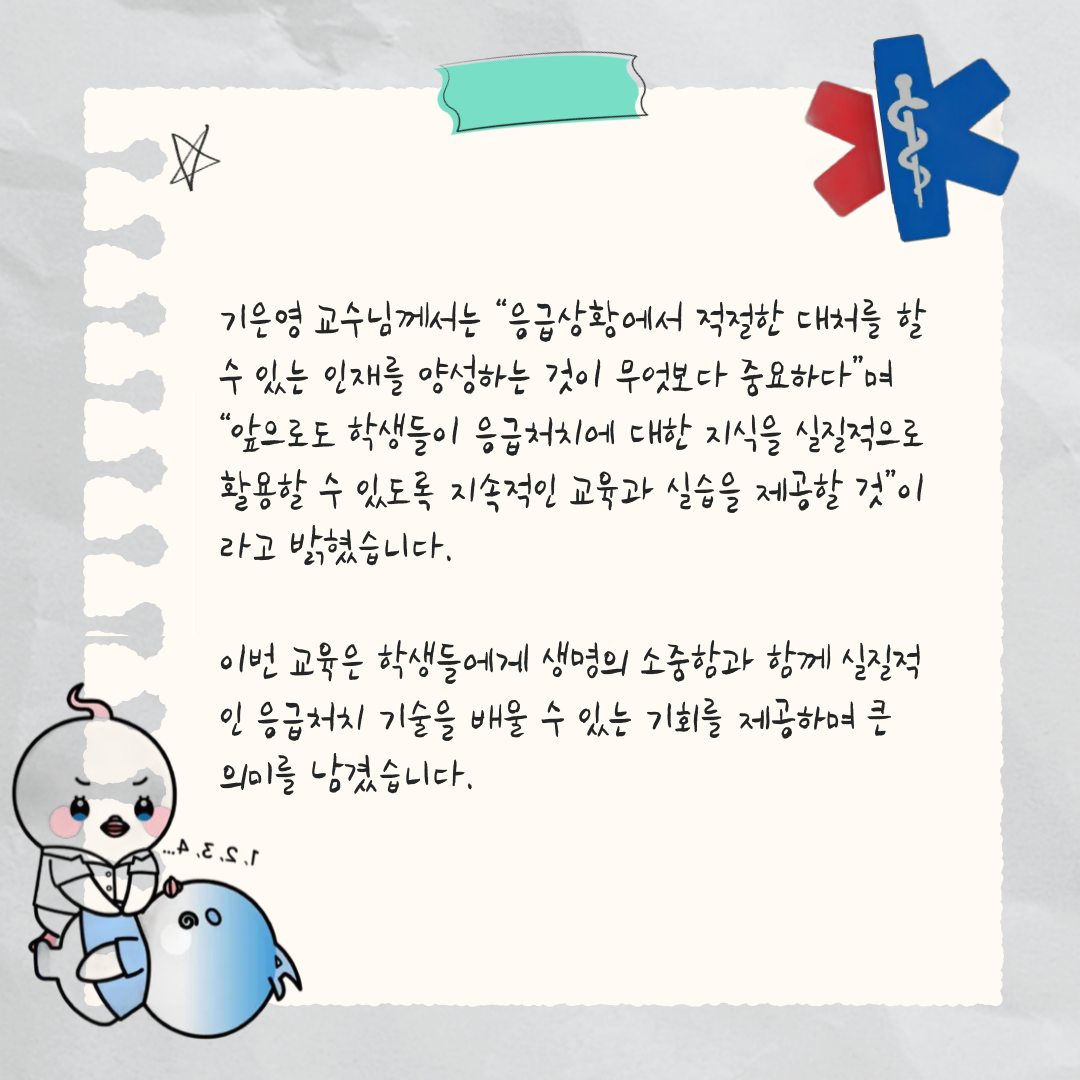 기은영 교수님께서는 “응급상황에서 적절한 대처를 할
수 있는 인재를 양성하는 것이 무엇보다 중요하다”며
“앞으로도 학생들이 응급처치에 대한 지식을 실질적으로
활용할 수 있도록 지속적인 교육과 실습을 제공할 것”이
라고 밝혔습니다.
이번 교육은 학생들에게 생명의 소중함과 함께 실질적
인 응급처치 기술을 배울 수 있는 기회를 제공하며 큰
의미를 남겼습니다.
1, 2, 3, 4...